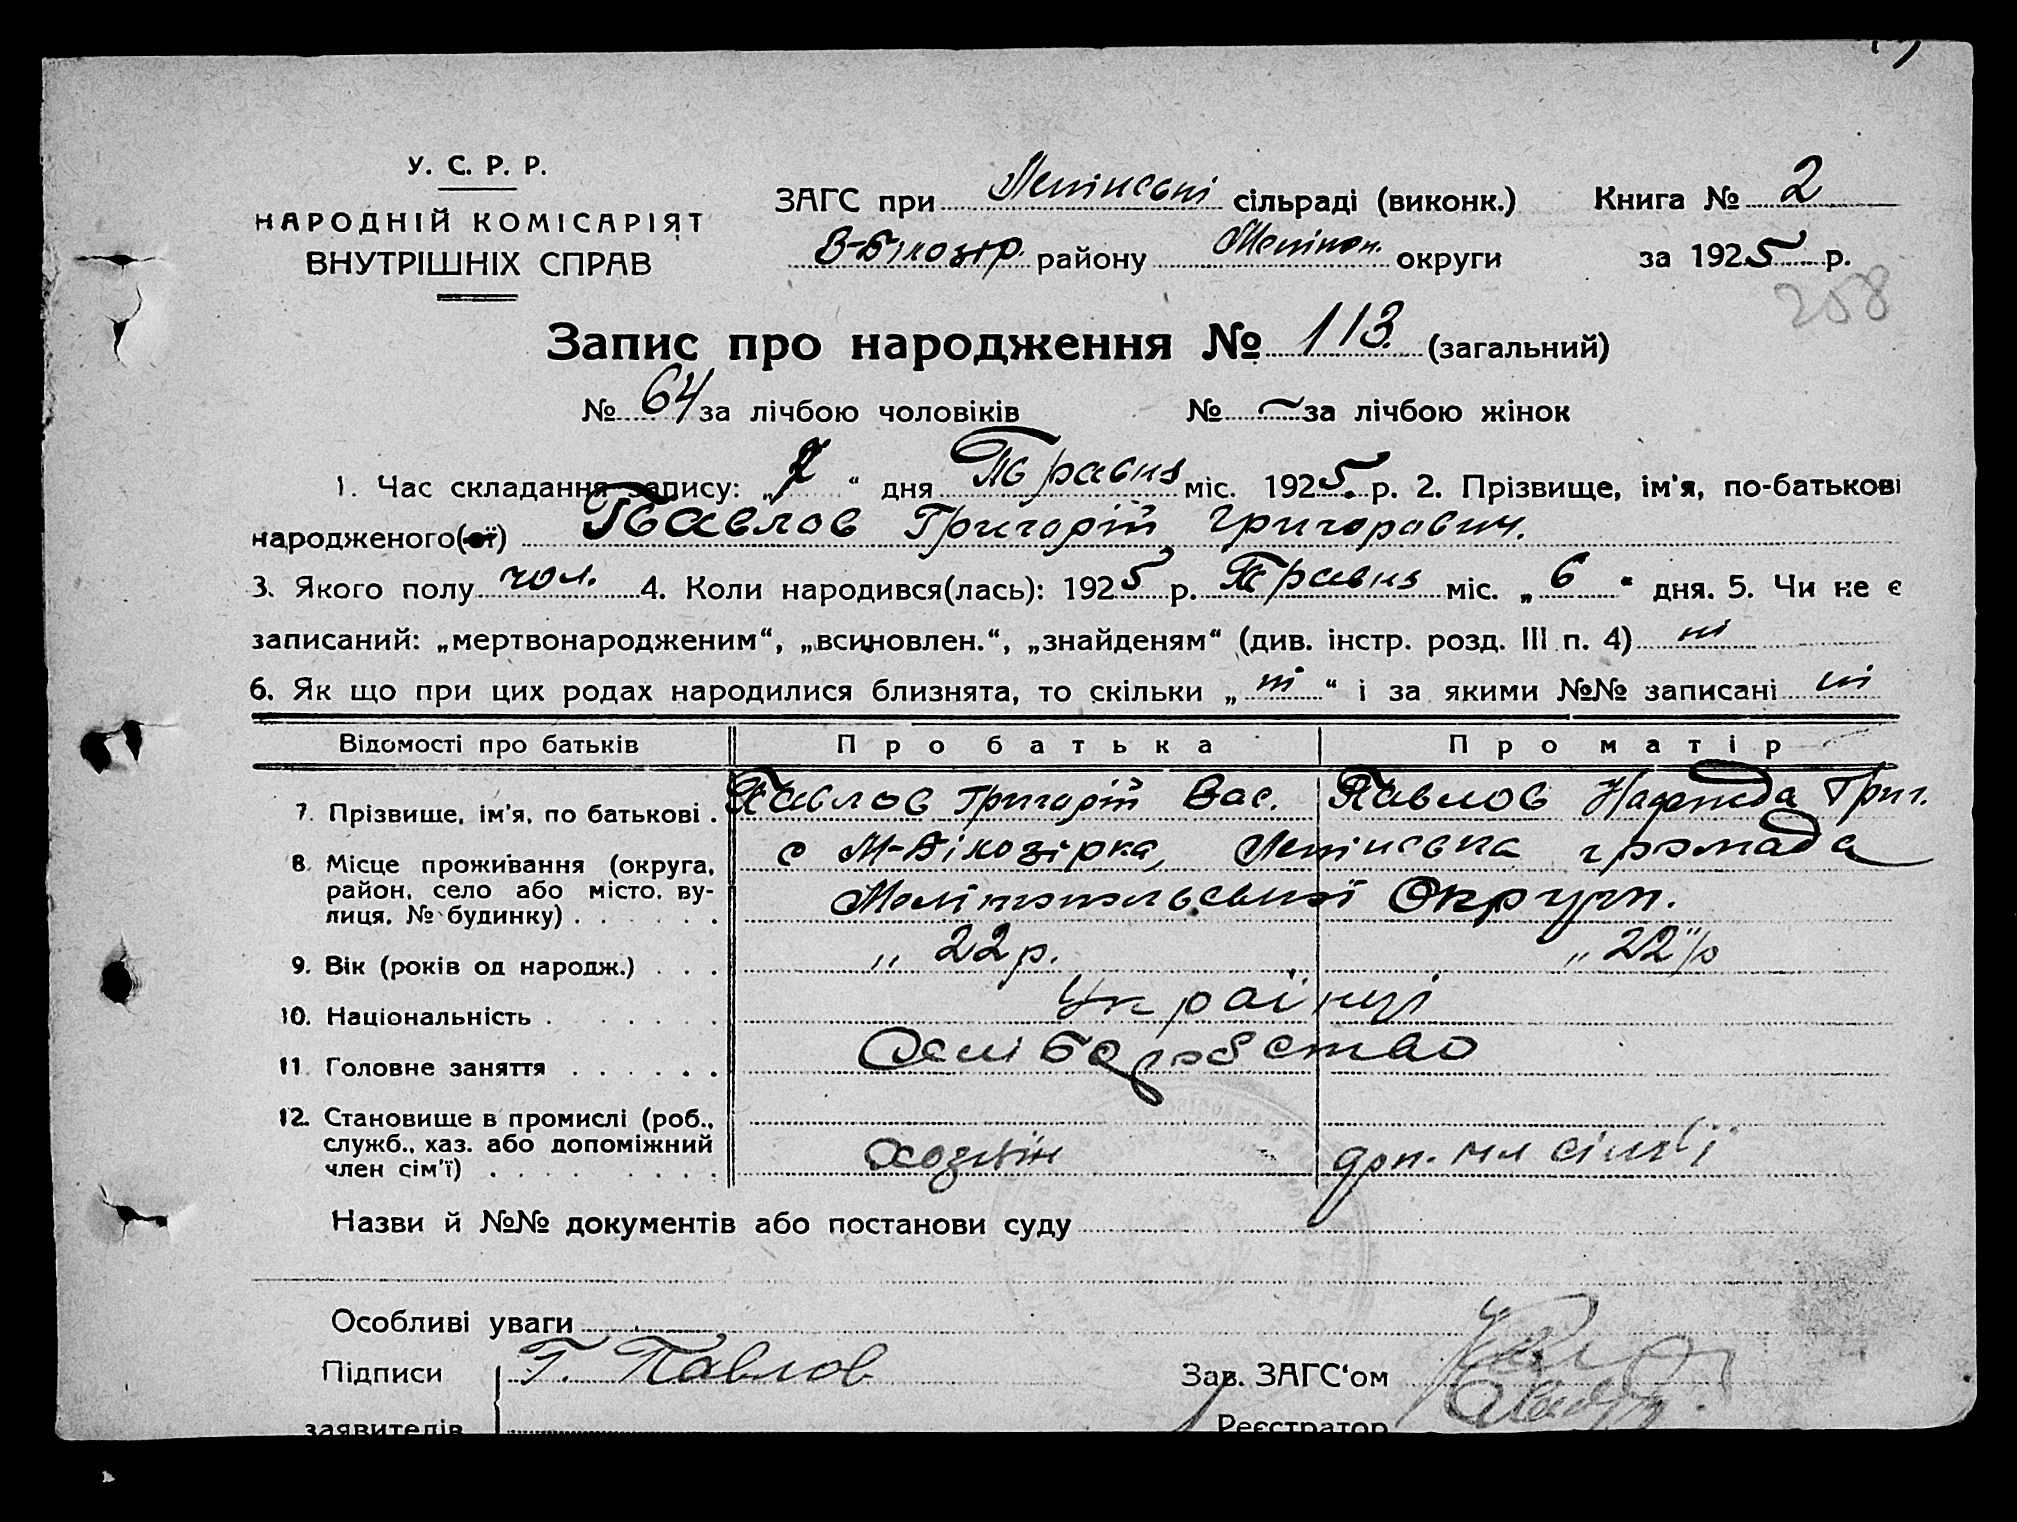 У. С. Р. Р.
НАРОДНІЙ КОМІСАРІЯТ
ВНУТРІШНІХ СПРАВ
ЗАГС при Ленінській сільраді (виконк.) Книга № 2
В-Білозір. району Мелітоп. округи за 1925 р.
258
Запис про народження № 113. (загальний)
№ 64 за лічбою чоловіків № — за лічбою жінок
1. Час складання запису: „7“ дня Травня міс. 1925. р. 2. Прізвище, ім'я, по-батькові
народженого(ої) Павлов Григорій Григорович.
3. Якого полу чол. 4. Коли народився(лась): 1925 р. Травня міс. „6“ дня. 5. Чи не є
записаний: „мертвонародженим“, „всиновлен.“, „знайденям“ (див. інстр. розд. III п. 4) ні
6. Як що при цих родах народилися близнята, то скільки „ні“ і за якими №№ записані ні
Відомості про батьків Про батька Про матір
7. Прізвище, ім'я, по батькові . Павлов Григорій Вас. Павлов Надежда Григ.
8. Місце проживання (округа, район, село або місто, вулиця, № будинку) . . . . . с М-Білозірка, Ленінська громада
Мелітопольської Округи.
9. Вік (років од народж.) . . . „ 22 р. „ 22" р
10. Національність . . . . . . Українці
11. Головне заняття . . . . . . Хліборобство
12. Становище в промислі (роб., служб., хаз. або допоміжний член сім'ї) . . . . . . . Хозяїн доп. чл сім'ї
Назви й №№ документів або постанови суду
Особливі уваги
Підписи Г. Павлов Зав. ЗАГС'ом
заявителів Реєстратор